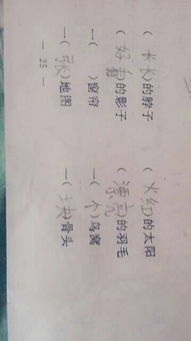 (长长)的脖子 (火红)的太阳
(好看)的影子 (漂亮)的羽毛
一( )窗帘 一(个)鸟窝
一(张)地图 一(块)骨头
— 25 —